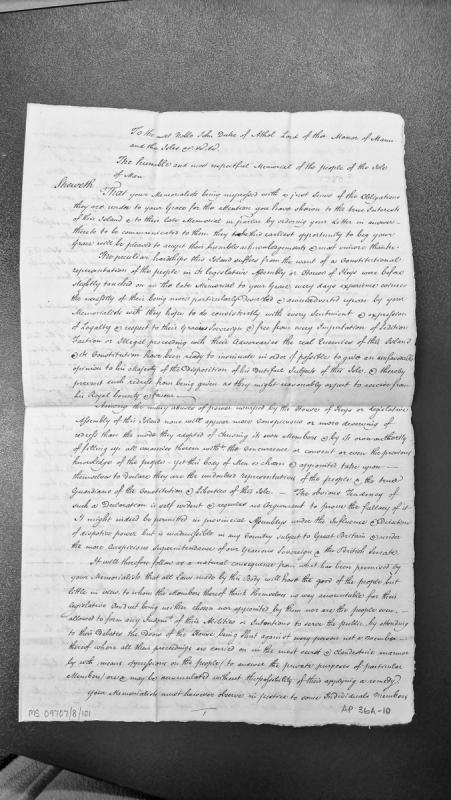 To the Noble John Duke of Athol Lord of the Manor of Mann
and the Isles &c
The humble and most respectful Memorial of the people of the Isle
of Man
Sheweth That your Memorialists being impressed with a just sense of the Obligations
they are under to your Grace for the attention you have shown to the true Interests
of this Island & to their late Memorial in particular by ordering your letter in answer
thereto to be communicated to them they take this earliest opportunity to beg your
Grace will be pleased to accept their humble acknowledgements & most sincere thanks
The peculiar hardships this Island suffers from the want of a Constitutional
representation of the people in its legislative Assembly or House of Keys were before
slightly touched on in the late Memorial to your Grace every days experience evinces
the necessity of their being more particularly & animadverted upon by your
Memorialists wch they hope to do consistently with every Sentiment & expression
of Loyalty & respect to their Gracious Sovereign & free from every Imputation of Sedition
Faction or Illegal proceeding wch their Adversaries the real Enemies of this Island
& its Constitution have been ready to insinuate in order if possible to give an unfavourable
opinion to his Majesty of the Disposition of his Dutiful Subjects of this Isle & thereby
prevent such redress from being given as they might reasonably expect to receive from
his Royal bounty & favour
Among the many abuses of power usurped by the House of Keys or legislative
Assembly of this Island none will appear more Conspicuous or more deserving of
redress than the mode they adopted of chusing its own Members & by its own authority
of filling up all vacancies therein witht the Concurrence or consent or even the previous
knowledge of the people yet this body of Men so chosen & appointed take upon
themselves to Declare they are the undoubted representation of the people & the true
Guardians of the Constitution & Liberties of this Isle. The obvious Tendency of
such a Declaration is self evident & requires no Argument to prove the fallacy of it
It might indeed be permitted in provincial Assemblys under the Influence & Dictations
of dispotive power but is inadmissible in any Country subject to Great Britain & under
the more Auspicious Superintendance of our Gracious Sovereign & the British Senate
It will therefore follow as a natural consequence from what has been premised by
your Memorialists that all Laws made by this Body will have the good of the people but
little in view to whom the Members thereof think themselves no way amountable for their
legislative Conduct being neither chosen nor appointed by them nor are the people even
allowed to form any Judgmt of their Abilities or Intentions to serve the public by attending
to their Debates the Doors of the House being Shut against every person not a member
thereof where all their proceedings are carried on in the most secret & clandestine manner
by wch means opressions on the people to answer the private purposes of particular
Members are & may be accumulated without the possibility of their applying a remedy
Your Memorialists must however observe in justice to some Individuals Members
MS 09707/8/101
AP 36A-10